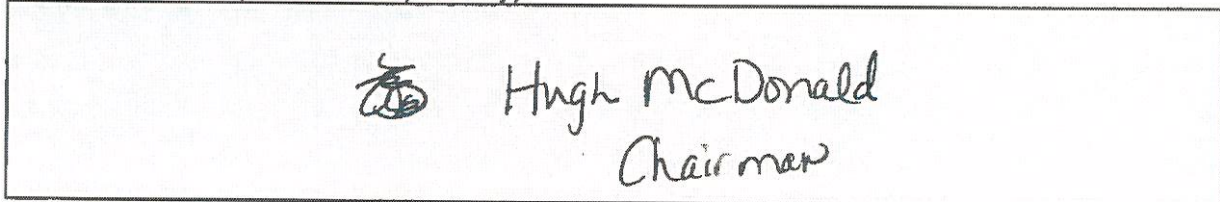 Hugh McDonald
Chairman